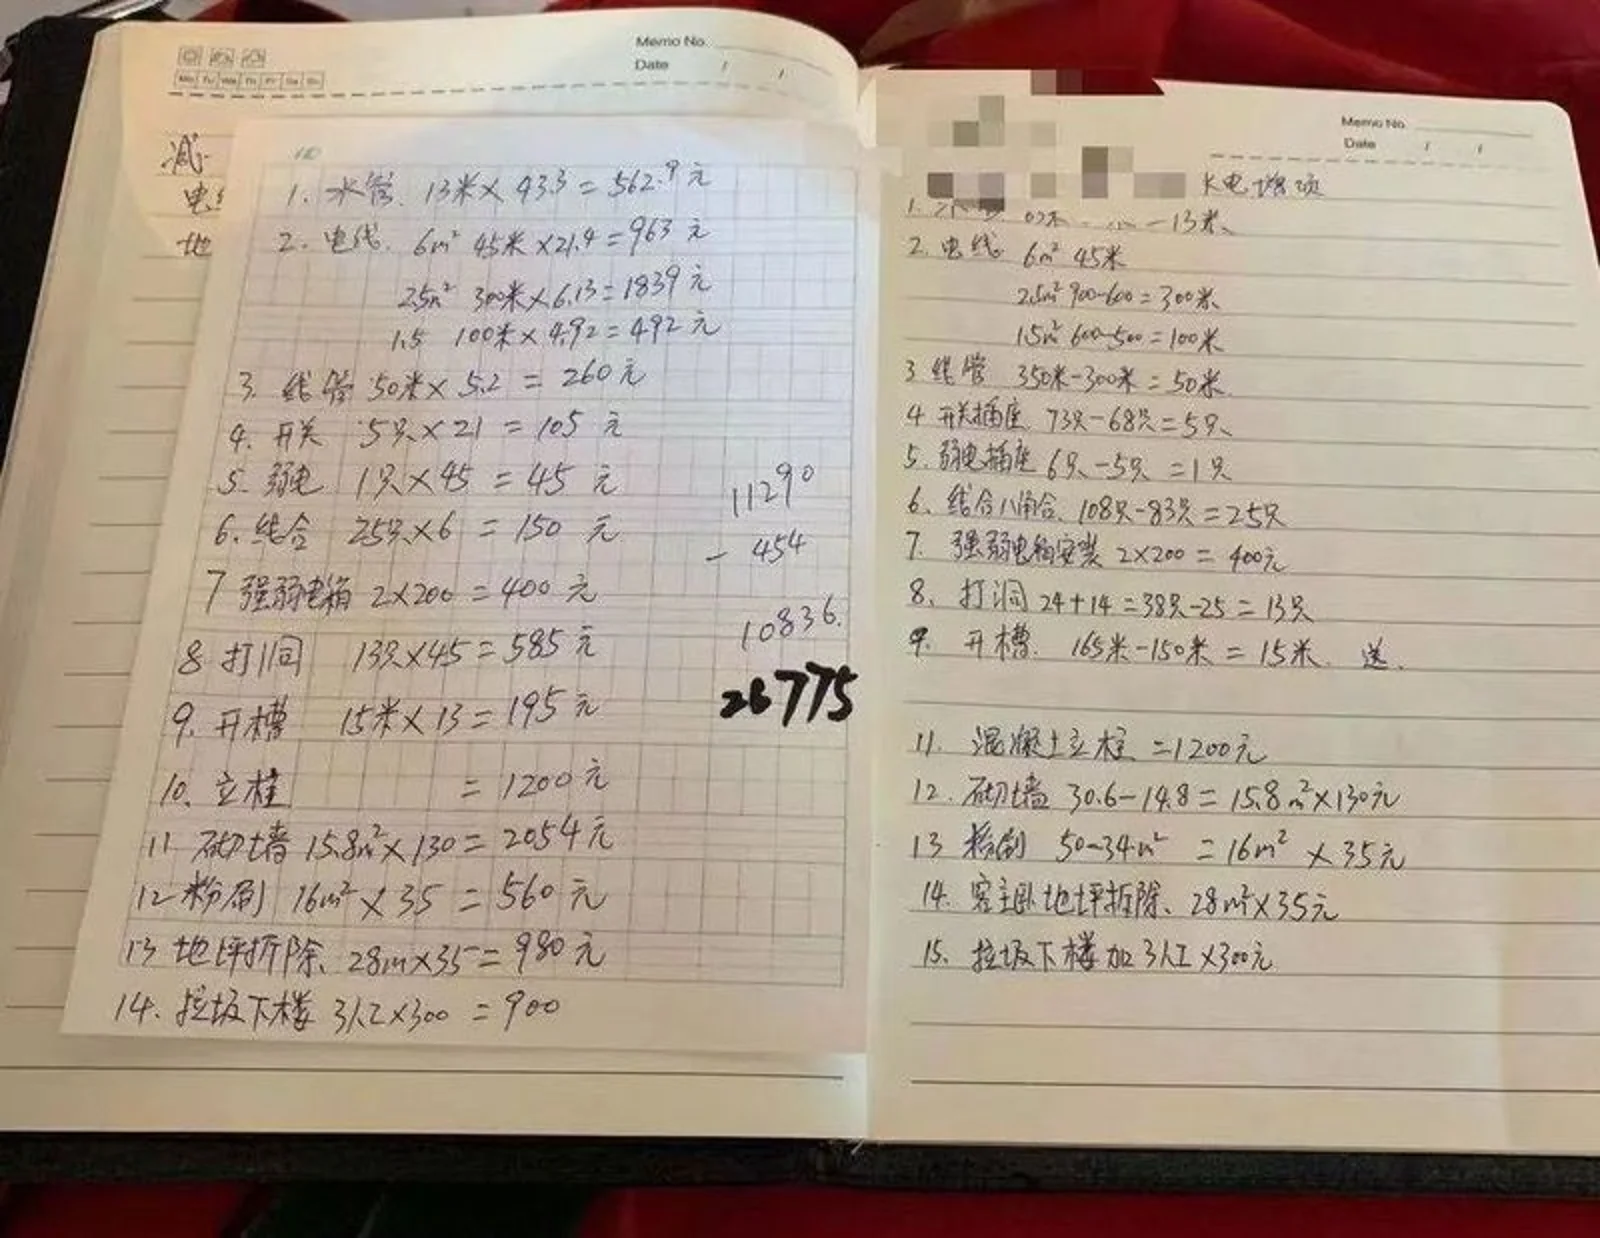 Memo No.
Date / /
Mo Tu We Th Fr Sa Su
减
电
地
1. 水管 13米×43.3=562.9元
2. 电线 6m² 45米×21.4=963元
2.5m² 300米×6.13=1839元
1.5 100米×4.92=492元
3. 线管 50米×5.2=260元
4. 开关 5只×21=105元
5. 弱电 1只×45=45元
6. 线合 25只×6=150元
7 强弱电箱 2×200=400元
8 打洞 13只×45=585元
9. 开槽 15米×13=195元
10. 立柱 =1200元
11 砌墙 15.8m²×130=2054元
12 粉刷 16m²×35=560元
13 地坪拆除、28m×35=980元
14. 垃圾下楼 3人工×300=900
11290
- 454
10836.
26775
Memo No.
Date / /
水电增项
1. 一13米、
2. 电线 6m² 45米
2.5m² 900-600=300米
1.5m² 600-500=100米
3 线管 350米-300米=50米
4 开关插座 73只-68只=5只、
5. 弱电插座 6只-5只=1只
6、线合八角合、108只-83只=25只
7. 强弱电箱安装 2×200=400元
8、打洞 24+14=38只-25=13只
9. 开槽 165米-150米=15米. 送.
11. 混凝土立柱 =1200元
12. 砌墙 30.6-14.8=15.8m²×130元
13 粉刷 50-34m² =16m² ×35元
14. 客主卧地坪拆除、28m²×35元
15. 垃圾下楼加3人工×300元